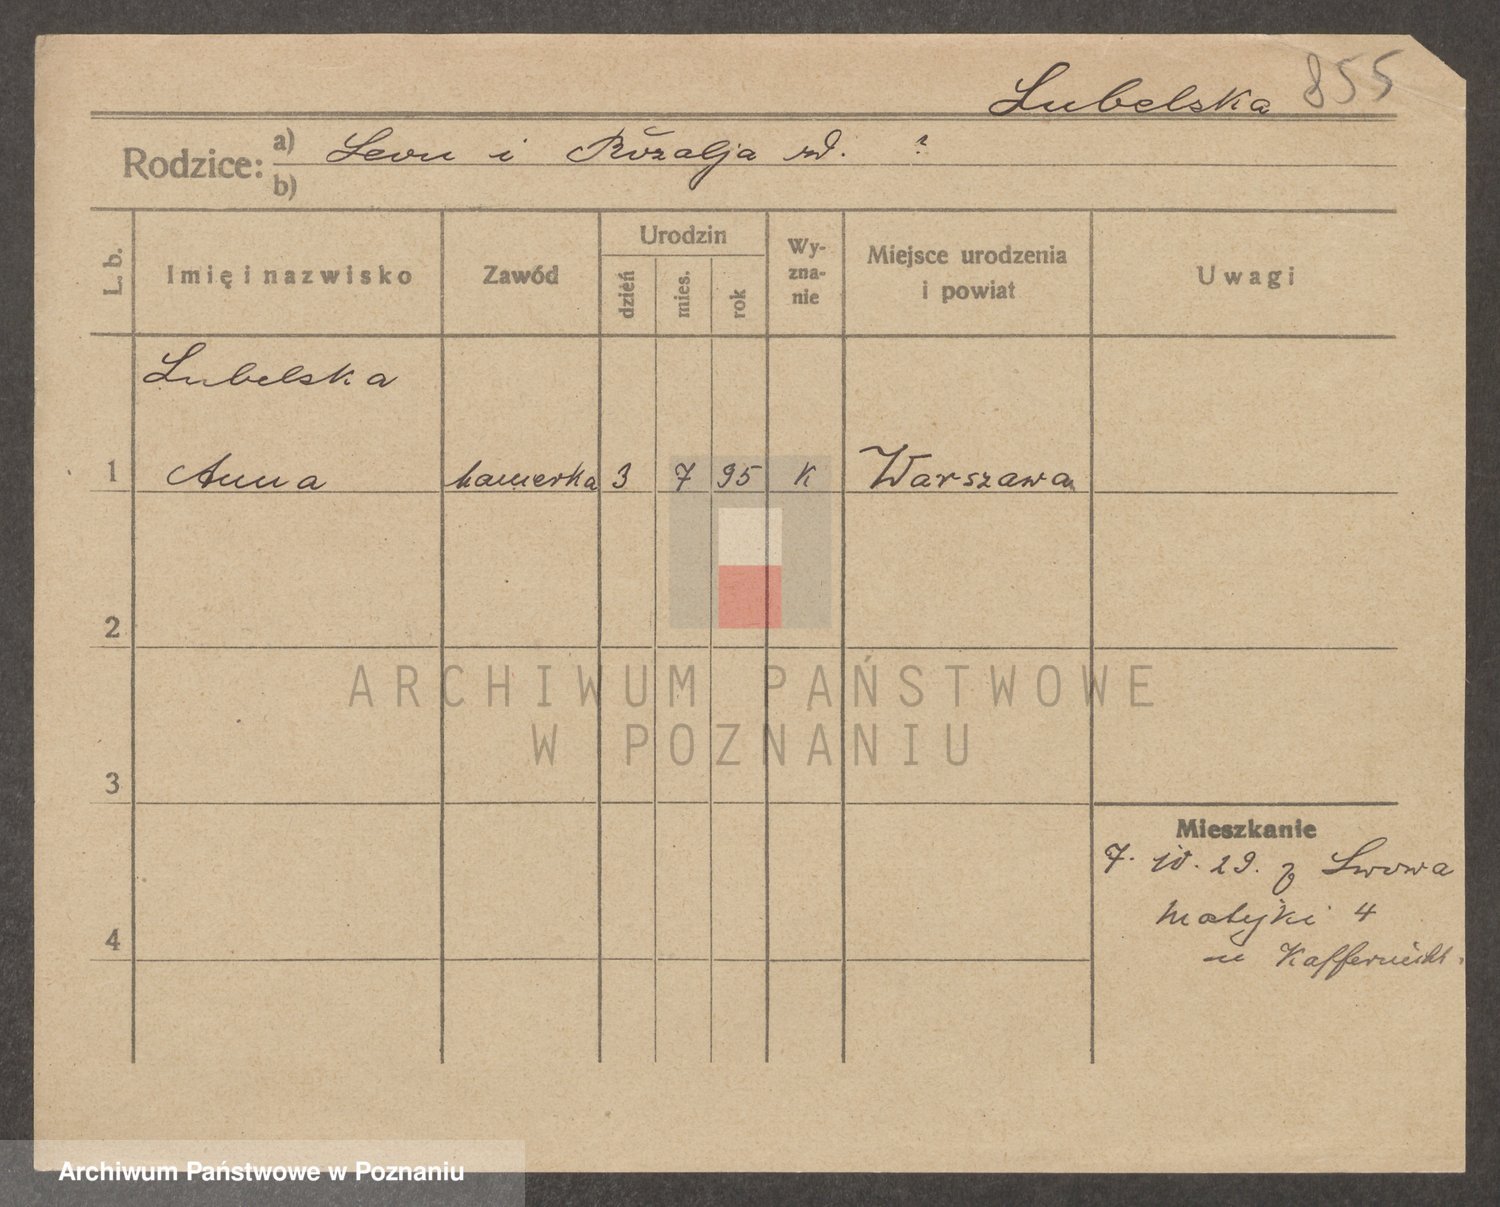 Lubelska 855
Rodzice: a) Leon i Rozalja zd. ?
b)
L. b. Imię i nazwisko Zawód Urodzin dzień mies. rok Wyznanie Miejsce urodzenia i powiat Uwagi
Lubelska
1 Anna 3 7 95 K Warszawa
2
ARCHIWUM PAŃSTWOWE
W POZNANIU
3
Mieszkanie
7. IV. 29. z Lwowa
Matejki 4
4
u
Archiwum Państwowe w Poznaniu